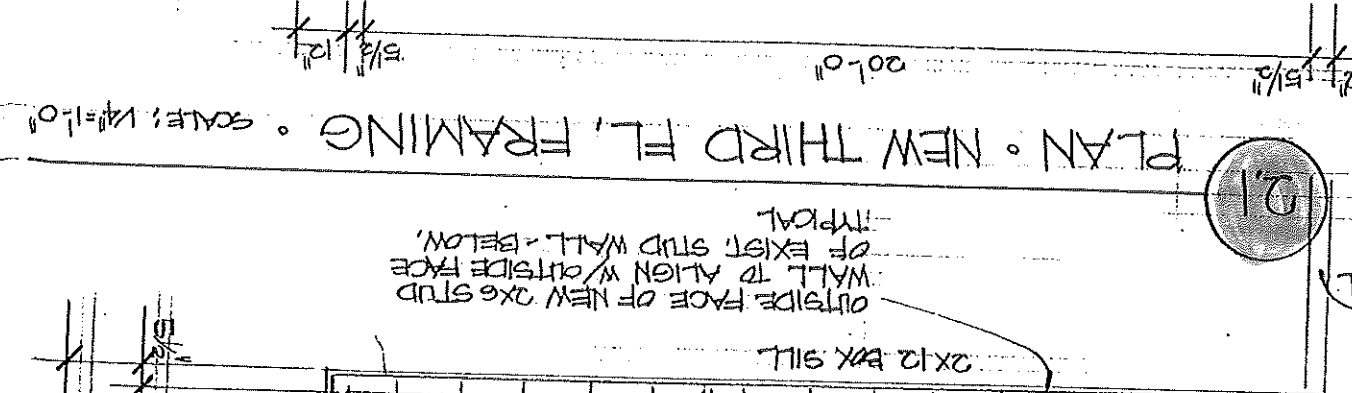 2X12 BOX SILL
5 1/2"
OUTSIDE FACE OF NEW 2X6 STUD
WALL TO ALIGN W/OUTSIDE FACE
OF EXIST. STUD WALL - BELOW.
TYPICAL
2.1
PLAN • NEW THIRD FL. FRAMING • SCALE: 1/4"=1'-0"
5 1/2" 20'-0" 5 1/2" 12"